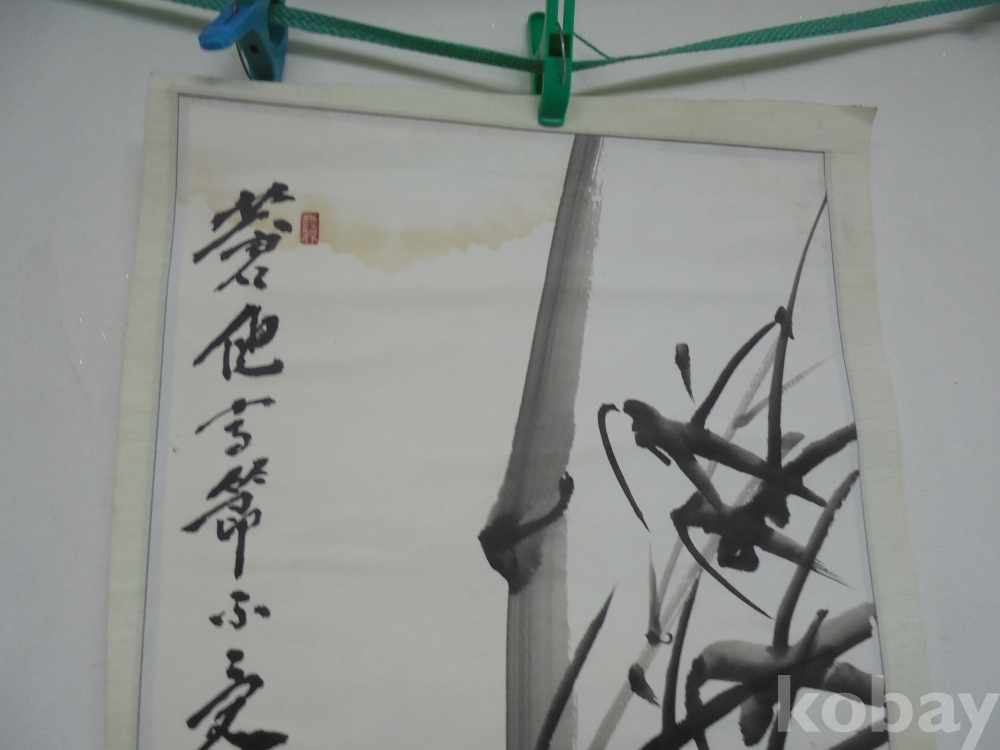 蒼色高節不受
kobay